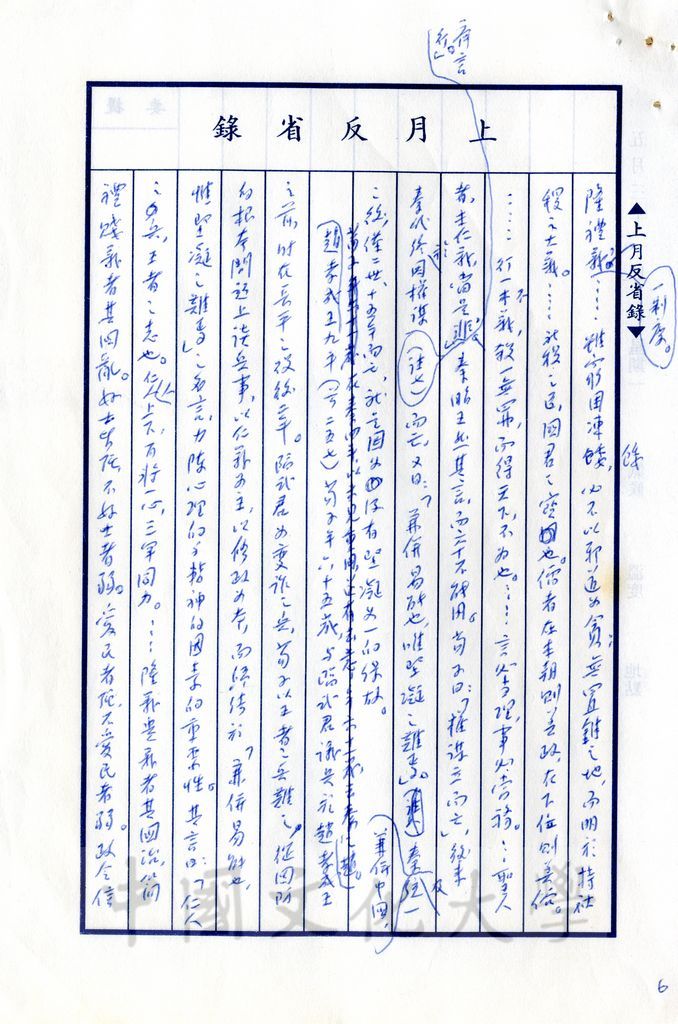 上月反省錄
▲上月反省錄▼
隆禮義……雖窮困凍餧，必不以邪道為貪；無置錐之地，而明於持社
稷之大義。……社稷之臣，國君之寶也。儒者在本朝則美政，在下位則美俗。
……行一不義，殺一無罪，而得天下，不為也。……言必當理，事必當務。……聖人
者，主仁義，當是非，齊言行。秦昭王然其言，而不能用。荀子曰：「權謀立而亡」，後來
秦代終因權謀而亡。又曰：「兼併易能也，唯堅凝之難焉」。秦統一
兼併中國，
之後，僅二世、十五年而亡，就是因為沒有堅凝為一的緣故。
趙孝成王九年（前二五七）荀子年六十五歲，與臨武君議兵於趙孝成王
之前，時在長平之役後三年。臨武君為變詐之兵，荀子以王者之兵難之，從國防
的根本問題上談兵事，以仁義為主，以修政為本，而歸結於「兼併易能也，
惟堅凝之難焉」之名言，力陳心理的與精神的因素的重要性。其言曰：「仁人
之兵，王者之志也。仁人上下，百將一心，三軍同力。……隆禮貴義者其國治，簡
禮賤義者其國亂。好士者強，不好士者弱。愛民者強，不愛民者弱。政令信
中國文化大學
6